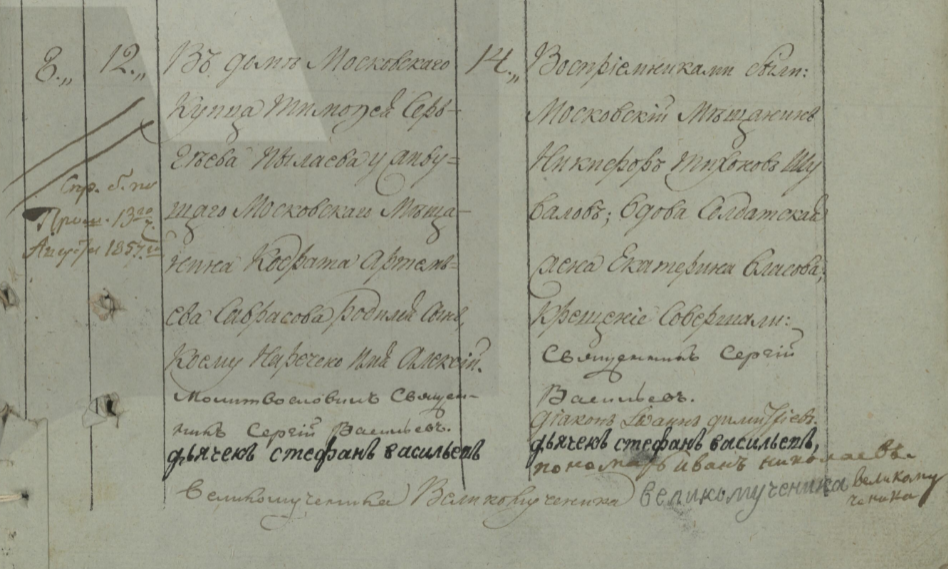 8.„ 12.„
Въ домѣ Московскаго
Купца Тимофея Серь=
еѣева Пылаева у живу=
щаго Московскаго Мѣща=
нина Кодрата Артемь=
ева Саврасова родился Сынъ,
Коему Наречено Имя Алексѣй.
Молитвословилъ Священ-
никъ Сергій Васильевъ.
дьячекъ стефанъ васильевъ
Спр. 
13го
1857.го
14.„
Воспріемниками были:
Московскій Мѣщанинъ
Никифоръ Тихоновъ Шу
валовъ; вдова Солдатская
жена Екатерина Власова;
Крещеніе Совершали:
Священникъ Сергій
Васильевъ.
діаконъ Іоаннъ димитріевъ.
дьячекъ стефанъ васильевъ,
пономарь иванъ николаевъ
великомученика Великомученика великомученика великому
ченика